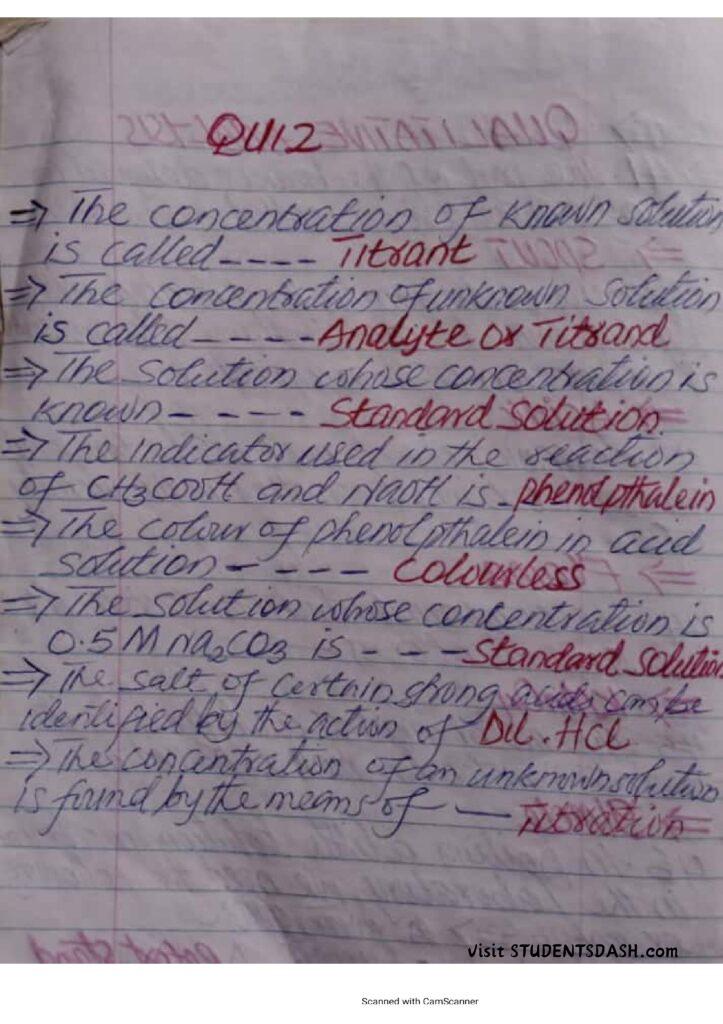 QUIZ
⇒ The concentration of known solution
is called---- Titrant
⇒ The concentration of unknown solution
is called-----Analyte or Titrand
⇒ The solution whose concentration is
known----- Standard solution
⇒ The indicator used in the reaction
of CH3COOH and NaOH is - phenolpthalein
⇒ The colour of phenolpthalein in acid
solution---- Colourless
⇒ The solution whose concentration is
0.5M na2CO3 is ---Standard solution
⇒ The salt of certain strong acids can be
identified by the action of Dil. HCl
⇒ The concentration of an unknown solution
is found by the means of -- Titration
Visit STUDENTSDASH.com
Scanned with CamScanner